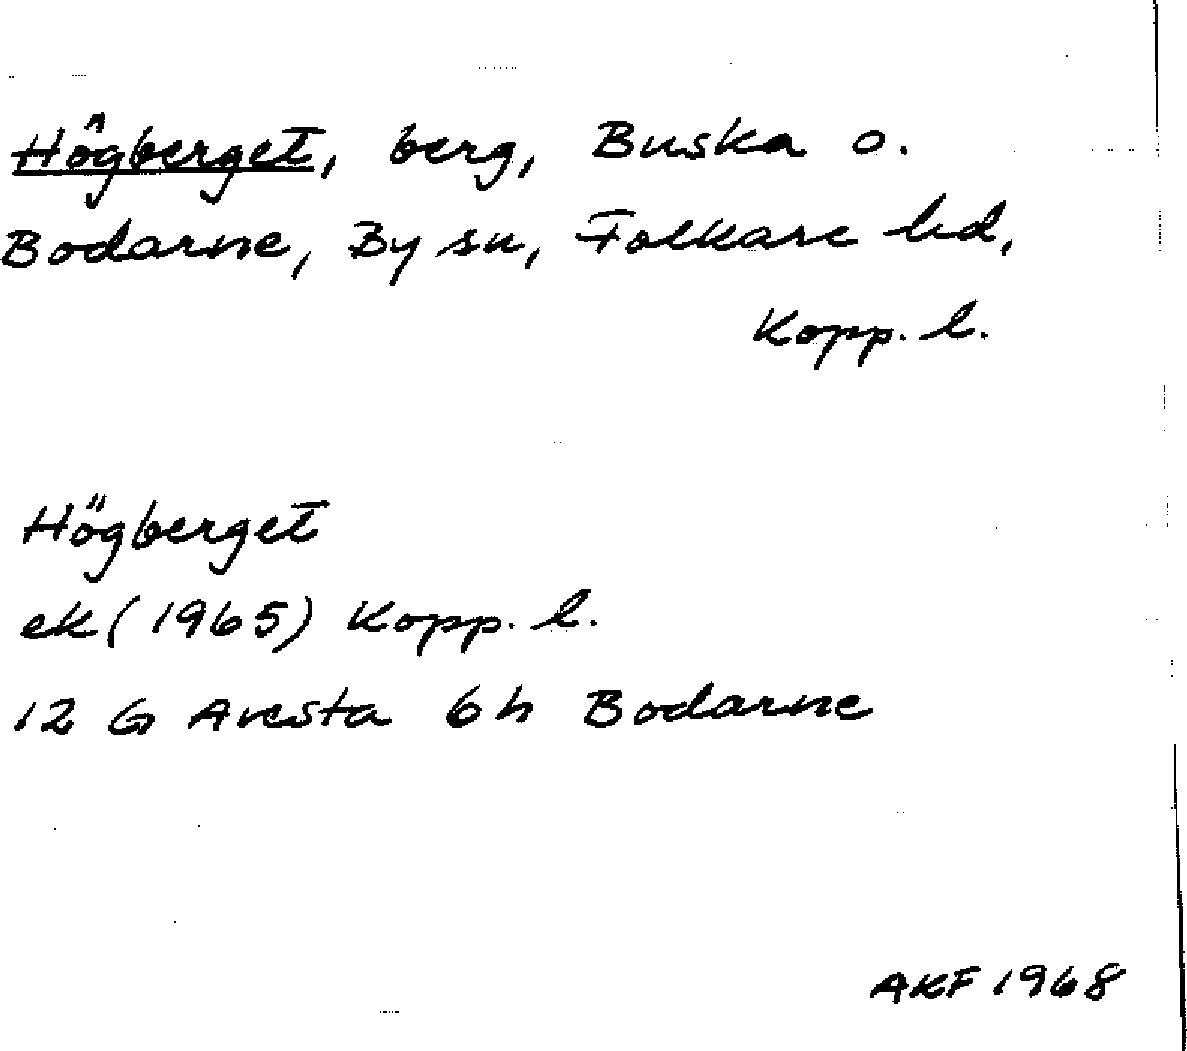 Högberget, berg, Buska o.
Bodarne, By sn, Folkare hd,
Kopp. l.
Högberget
ek (1965) Kopp. l.
12 G Avesta 6h Bodarne
AKF 1968